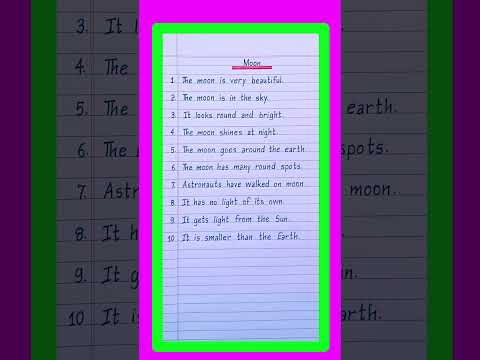 3. It l
4. The
5. The
6. The
7. Astr
8. It h
9. It g
10 It i
Moon
1. The moon is very beautiful.
2. The moon is in the sky.
3. It looks round and bright.
4. The moon shines at night.
5. The moon goes around the earth.
6. The moon has many round spots.
7. Astronauts have walked on moon.
8. It has no light of its own.
9. It gets light from the Sun.
10 It is smaller than the Earth.
earth.
spots.
moon.
n.
arth.